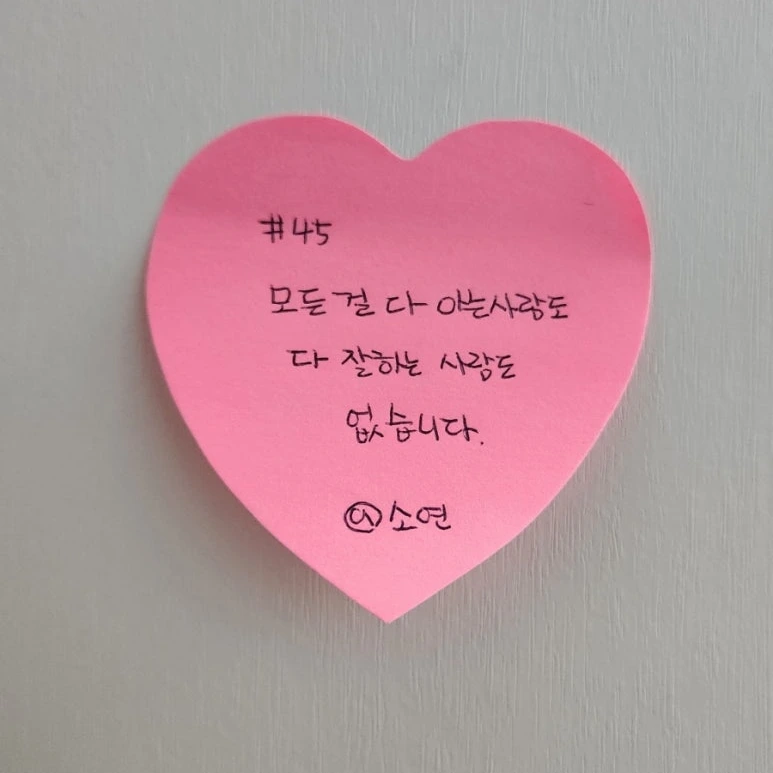 #45
모든 걸 다 아는사람도
다 잘하는 사람도
없습니다.
@소연